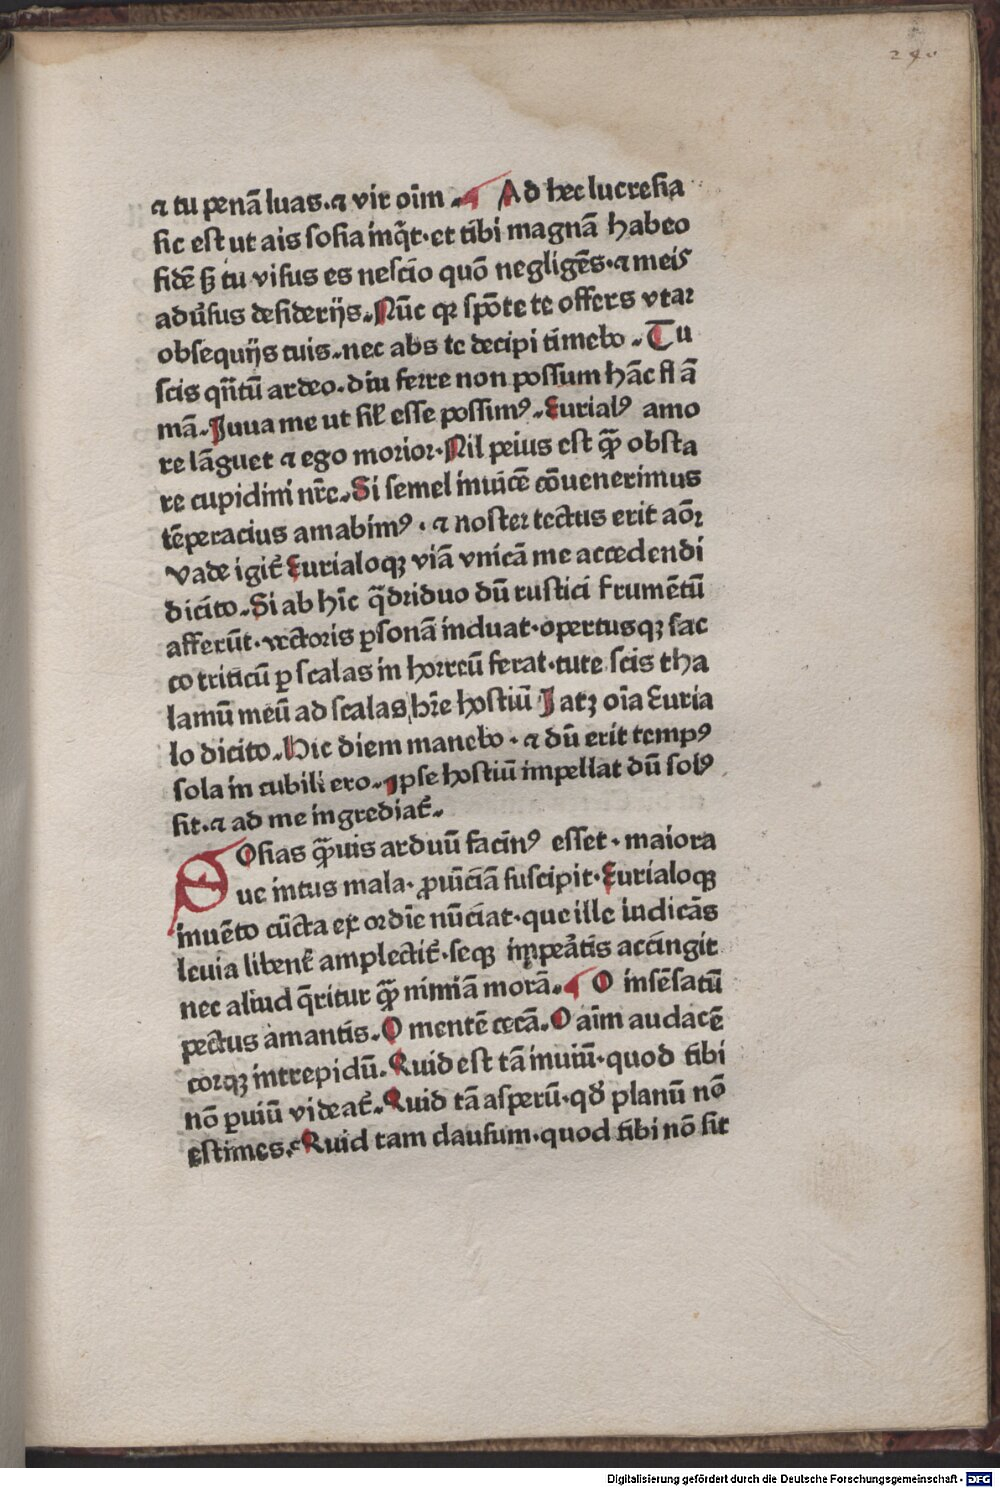 ⁊ tu penā luas.⁊ vir oīm . Ad hec lucresia
sic est ut ais sosia inq̄t.et tibi magnā habeo
fidē sꝫ tu visus es nescio quō negligēs.⁊ meis
adūsus desiderijs.Nūc qꝛ spōte te offers vtar
obsequijs tuis.nec abs te decipi timebo . Tu
scis qn̄tū ardeo.diu ferre non possum hāc flā
mā.Iuua me ut sil̄ esse possimꝰ.Eurialꝰ amo
re lāguet ⁊ ego morior.Nil peius est qꝫ̄ obsta
re cupidini nr̄e.Si semel inuicē cōuenerimus
tēperacius amabimꝰ . ⁊ noster tectus erit aōꝛ
Vade igit̄ Eurialoqꝫ viā vnicā me accedendi
dicito.Si ab hīc q̄driduo dū rustici frumētū
afferūt.vectoris ꝑsonā induat.opertusqꝫ sac
co triticū ꝑ scalas in horreū ferat.tute scis tha
lamū meū ad scalas hr̄e hostiū Iatꝫ oīa Euria
lo dicito.Hic diem manebo . ⁊ dū erit tempꝰ
sola in cubili ero.Ipse hostiū impellat dū solꝰ
sit.⁊ ad me ingrediat̄.
SOsias qꝫ̄uis arduū facinꝰ esset . maiora
ue intus mala. ꝓuīciā suscipit.Eurialoqꝫ
inuēto cūcta ex ordīe nūciat.que ille iudicās
leuia libent̄ amplectit̄.seqꝫ impeātis accingit
nec aliud q̄ritur qꝫ̄ nimiā morā. O insēsatū
pectus amantis.O mentē cecā.O aīm audacē
corqꝫ intrepidū.Quid est tā inuiū.quod tibi
nō ꝑuiū videat̄.Quid tā asperū.qḋ planū nō
estimes.Quid tam clausum.quod tibi nō sit
Digitalisierung gefördert durch die Deutsche Forschungsgemeinschaft - DFG